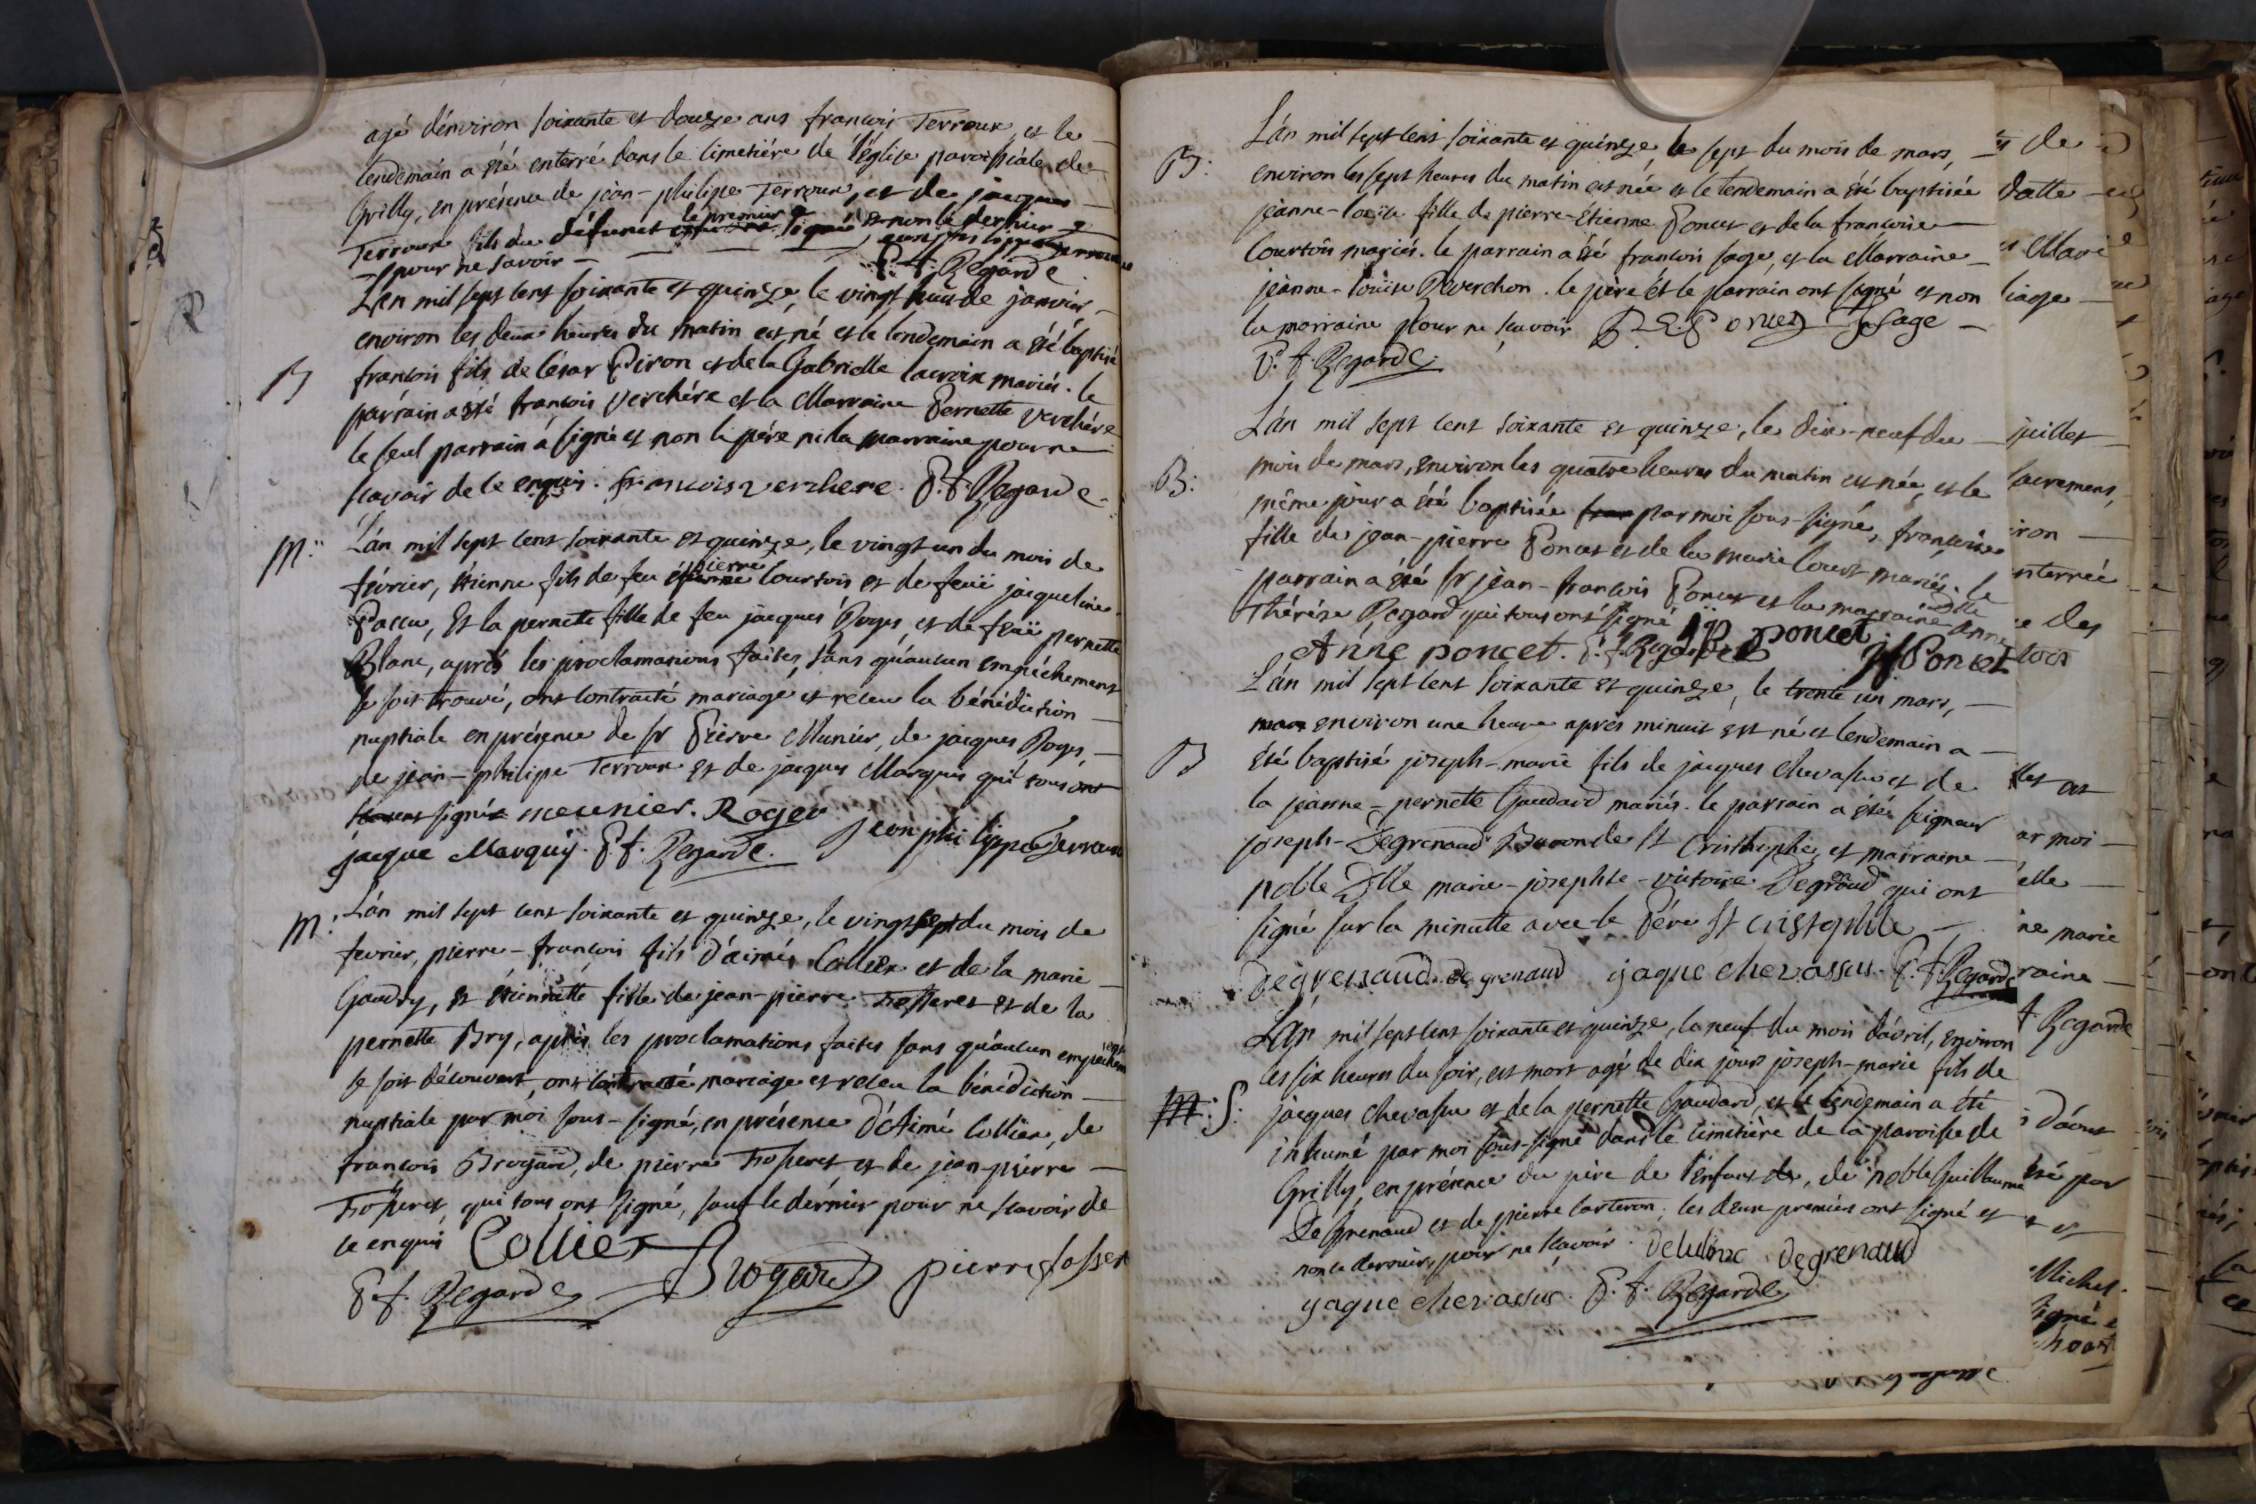 agé d'énviron soixante et douze ans francois Terroux, et le
lendemain a été enterré dans le cimetiére de l'église paroissiale de
Grilly, en présence de jean-philipe Terroux, et de jacques
Terroux fils du défunct le premier a signé, et non le dernier
pour ne savoir jean philippe terroux
P. f. Regarde
L'an mil sept cent soixante et quinze, le vingt huit de janvier,
environ les deux heures du matin est né et le lendemain a été baptisé
B
francois fils de César Piron et de la Gabrielle lacroix mariés. le
parrain a été francois Verchére et la Marraine Pernette verchére
le seul parrain a signé et non le pére ni la marraine pour ne
scavoir de ce enquis. francois verchere. P. f. Regarde
M:
L'an mil sept cent soixante et quinze, le vingt un du mois de
février, étienne fils de feu pierre Courtois et de feüe jacqueline
Paccu, Et la pernette fille de feu jacques Roges, et de feüe pernette
Blanc, aprés les proclamations faites, sans qu'aucun empéchement
se soit trouvé, ont contracté mariage et receu la bénédiction
nuptiale en présence de sr Pierre Munier, de jacques Roges,
de jean-philipe Terroux et de jacques Marquis qui tous ont
signé meunier. Roger
jacque Marquis. P. f. Regarde. Jean philippe Terroux
M:
L'an mil sept cent soixante et quinze, le vingt sept du mois de
fevrier, pierre-francois fils d'aimé Collier et de la marie
Gaudry, et étiennette fille de jean-pierre Fosseret et de la
pernette Bry, aprés les proclamations faites sans qu'aucun empéchement
se soit découvert, ont contracté mariage et receu la bénédiction
nuptiale par moi sous-signé, en présence d'Aimé Collier, de
francois Brogard, de pierre Fosseret et de jean-pierre
Fosseret, qui tous ont signé, sauf le dérnier pour ne scavoir de
ce enquis Collier Brogard pierre fosseret
P. f. Regarde
L'an mil sept cent soixante et quinze, le sept du mois de mars,
B:
environ les sept heures du matin est née et le lendemain a été baptisée
jeanne-loüise fille de pierre-étienne Poncet et de la francoise
Courtois mariés. le parrain a été francois sage, et la Marraine
jeanne-loüise Reverchon. le pére et le parrain ont signé et non
la marraine pour ne scavoir P. E. Poncet f sage
P. f. Regarde
L'an mil sept cent soixante et quinze, le dix-neuf du
B:
mois de mars, environ les quatre heures du matin est née, et le
même jour a été baptisée par moi sous-signé, francoise
fille de jean-pierre Poncet et de la marie Court mariés. le
parrain a été sr jean-francois Poncet et la marraine dlle anne
Thérése Regard qui tous ont signé JP poncet
Anne poncet. P. f. Regarde jf Poncet
L'an mil sept cent soixante et quinze, le trente un mars,
environ une heure aprés minuit est né et lendemain a
B
été baptisé joseph-marie fils de jacques chevassu et de
la jeanne-pernette Gaudard mariés. le parrain a été seigneur
joseph-Degrenaud Baron de St Cristhophe, et marraine
noble Dlle marie-josephte-victoire Degrenaud qui ont
signé sur la minutte avec le Pére St cristophle
degrenaud. de grenaud jaque chevassus. P. f. Regarde
L'an mil sept cent soixante et quinze, le neuf du mois d'avril, environ
les six heures du soir, est mort agé de dix jours joseph-marie fils de
M: S:
jacques chevassu et de la pernette Gaudard, et le lendemain a été
inhumé par moi sous-signé dans le cimetière de la paroisse de
Grilly, en présence du pére de l'enfant, de noble Guillaume
De Grenaud et de pierre Carteron, les deux premiers ont signé et
non le dernier, pour ne scavoir. degrenaud
jaque chevassus. P. f. Regarde
de
datte
Marie
juillet
sacremens,
enterrée
des
par moi
elle
marie
Regarde
d'aout
été par
Michel.
signé